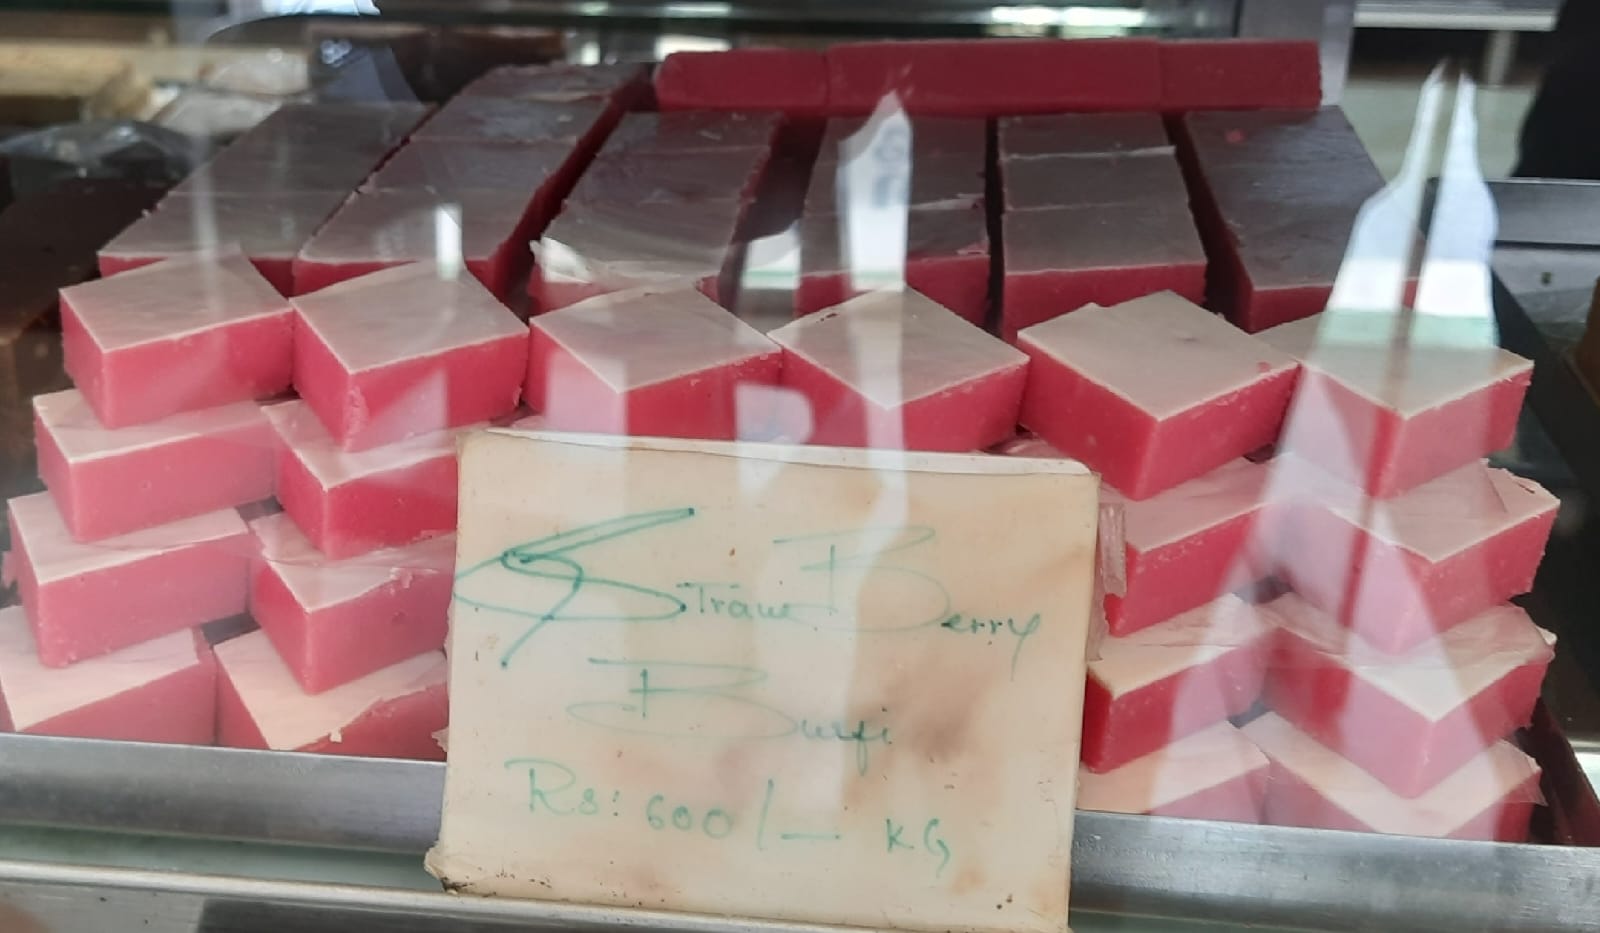 StrawBerry
Burfi
Rs: 600/- KG